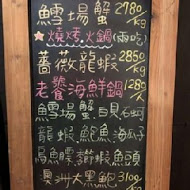 鱈場蟹 2780/kg
★燒烤火鍋(兩吃)
薔薇龍蝦 2850/kg
老饕海鮮鍋 1280
鱈場蟹.白貝.石蚵
龍蝦.鮑魚.海瓜子
烏魚鰾.鱘龍魚頭
澳洲大黑鮑 3100/kg